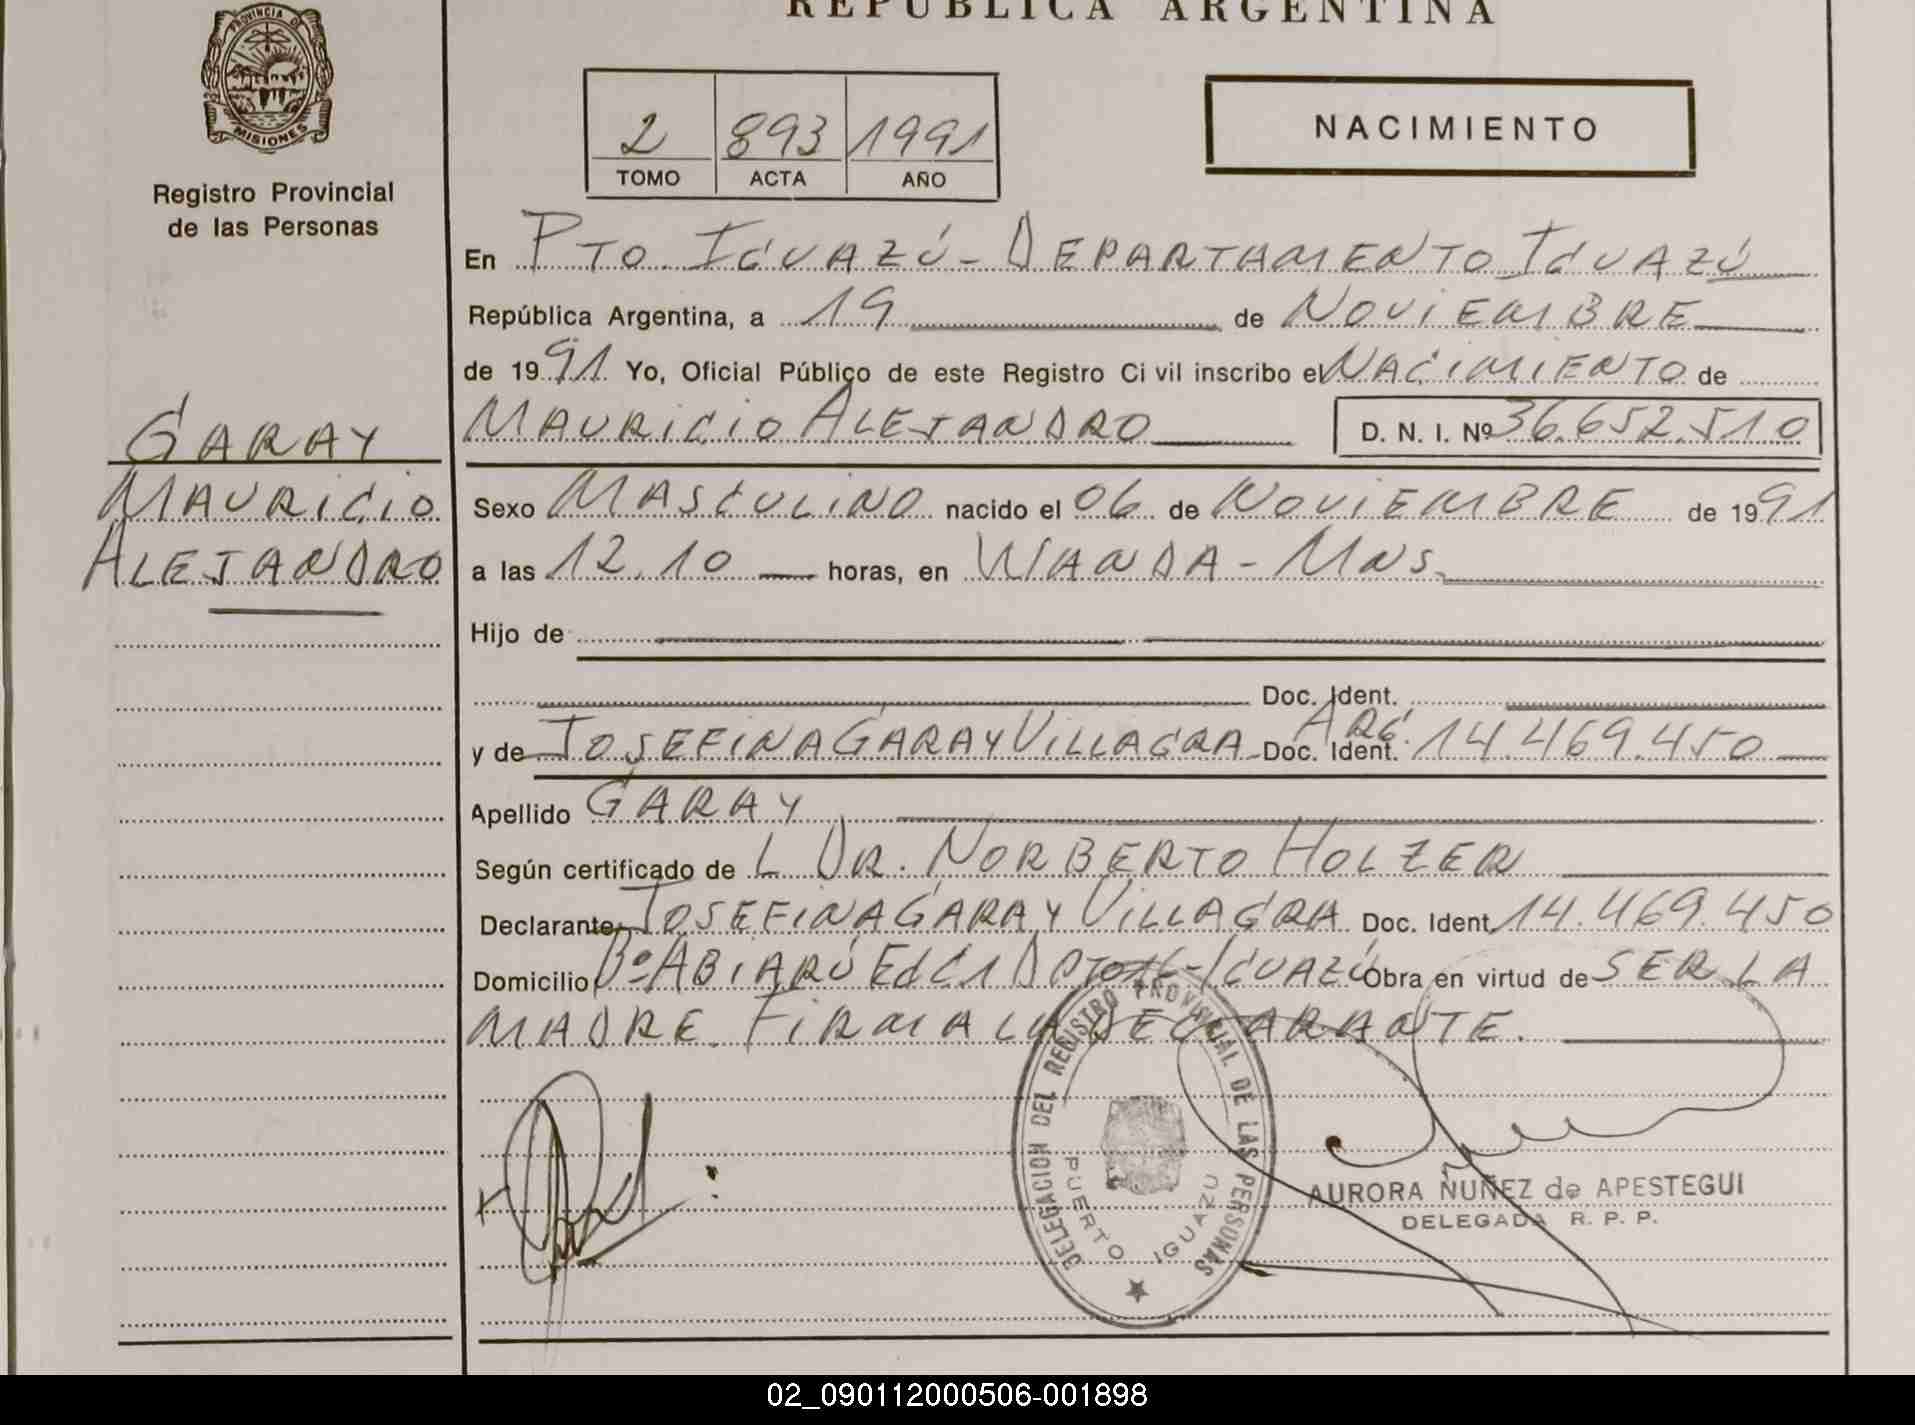 REPUBLICA ARGENTINA
PROVINCIA DE
MISIONES
Registro Provincial
de las Personas
2 893 1991
TOMO ACTA AÑO
NACIMIENTO
En PTO IGUAZÚ - DEPARTAMENTO IGUAZÚ
República Argentina, a 19 de NOVIEMBRE
de 1991 Yo, Oficial Público de este Registro Civil inscribo el NACIMIENTO de
MAURICIO ALEJANDRO D. N. I. Nº 36.652.510
GARAY
MAURICIO
ALEJANDRO
Sexo MASCULINO nacido el 06 de NOVIEMBRE de 1991
a las 12.10 horas, en WANDA - MNS.
Hijo de
Doc. Ident.
y de JOSEFINA GARAY VILLAGRA Doc. Ident. ARG. 14.469.450
Apellido GARAY
Según certificado de L DR. NORBERTO HOLZER
Declarante JOSEFINA GARAY VILLAGRA Doc. Ident. 14.469.450
Domicilio Bº ABIARÚ IGUAZÚ Obra en virtud de SER LA
MADRE. FIRMA LA DECLARANTE.
DELEGACION DEL REGISTRO PROVINCIAL DE LAS PERSONAS
PUERTO IGUAZU
AURORA NUÑEZ de APESTEGUI
DELEGADA R. P. P.
02_090112000506-001898